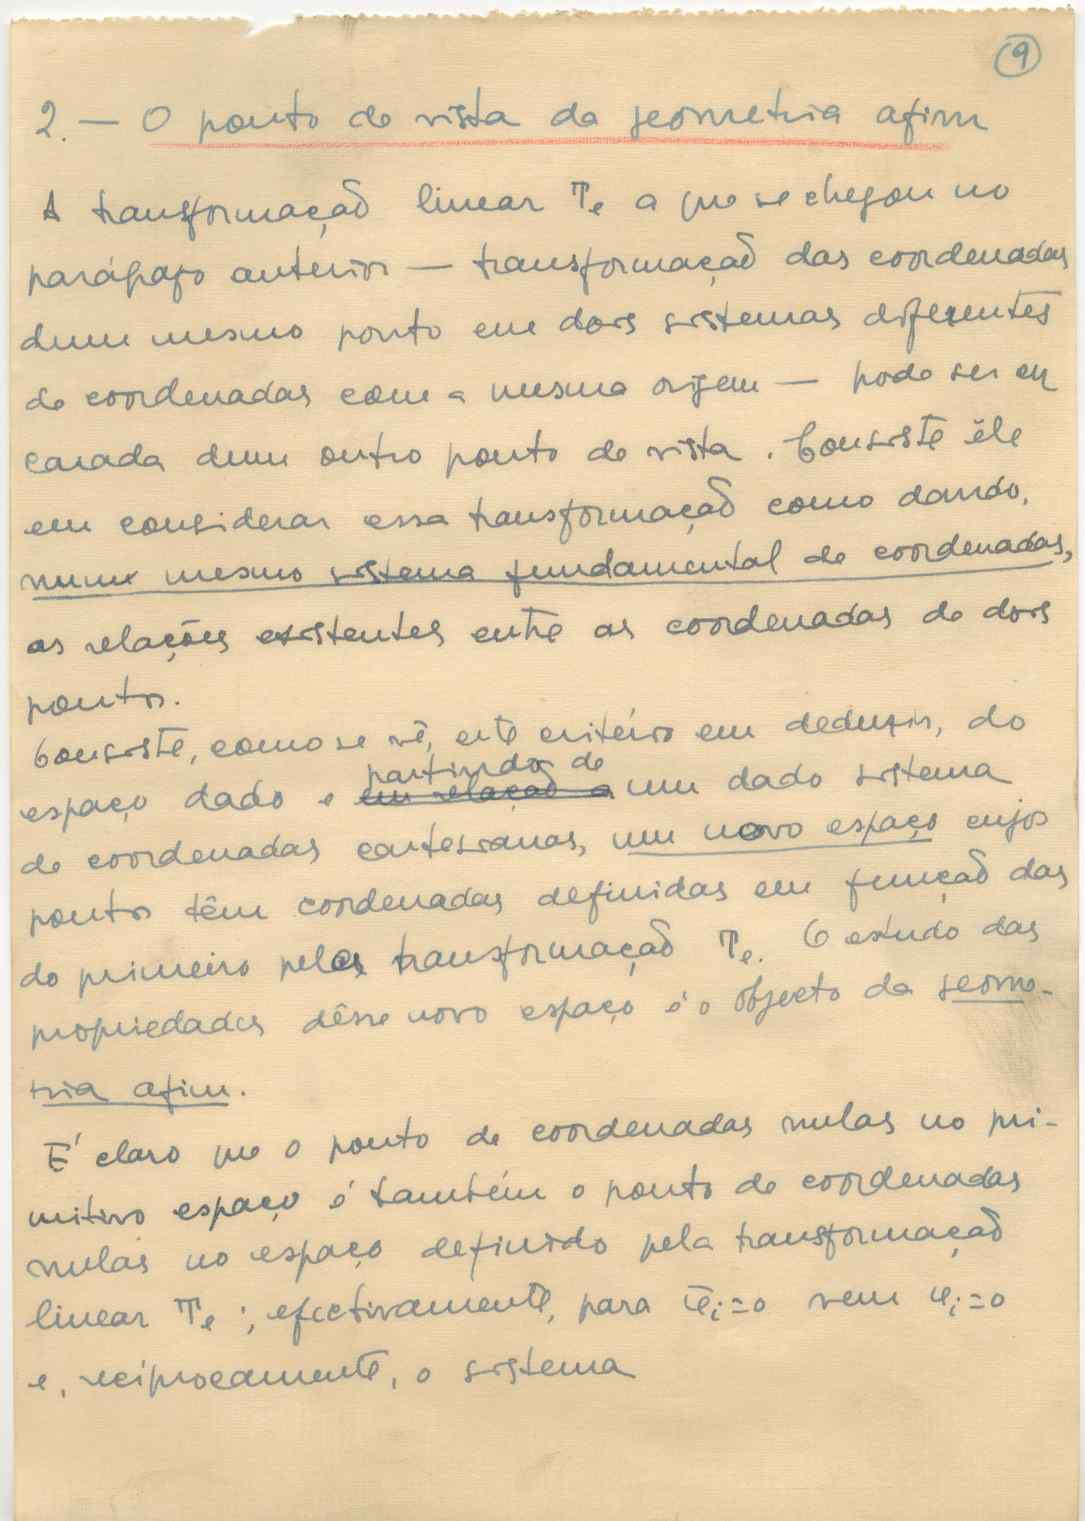 9
2. — O ponto de vista da geometria afim
A transformação linear Te a que se chegou no
parágrafo anterior — transformação das coordenadas
dum mesmo ponto em dois sistemas diferentes
de coordenadas com a mesma origem — pode ser en
carada dum outro ponto de vista. Consiste êle
em considerar essa transformação como dando,
num mesmo sistema fundamental de coordenadas,
as relações existentes entre as coordenadas de dois
pontos.
Consiste, como se vê, este critério em deduzir, do
partindo de
espaço dado e em relação a um dado sistema
de coordenadas cartesianas, um novo espaço cujos
pontos têm coordenadas definidas em função das
do primeiro pela transformação Te. O estudo das
propriedades dêsse novo espaço é o objecto da geome-
tria afim.
É claro que o ponto de coordenadas nulas no pri-
mitivo espaço é também o ponto de coordenadas
nulas no espaço definido pela transformação
linear Te; efectivamente, para ū_i=0 vem u_i=0
e, reciprocamente, o sistema